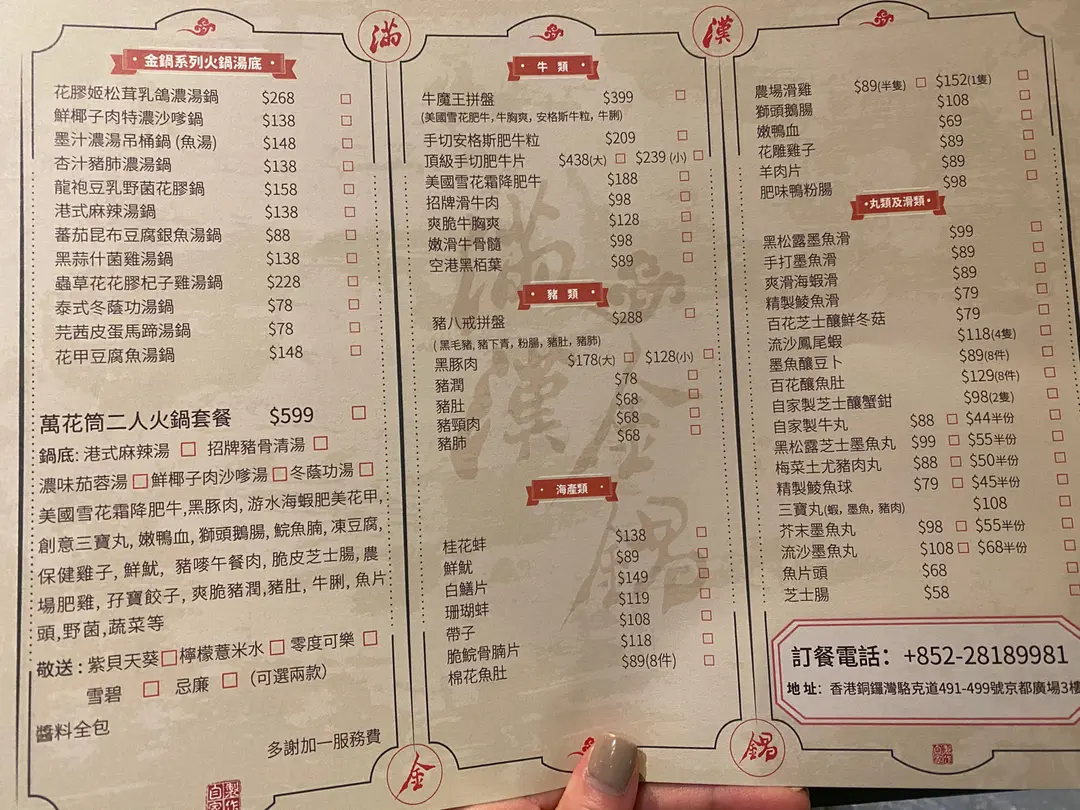 滿
漢
金鍋系列火鍋湯底
花膠姬松茸乳鴿濃湯鍋 $268 □
鮮椰子肉特濃沙嗲鍋 $138 □
墨汁濃湯吊桶鍋 (魚湯) $148 □
杏汁豬肺濃湯鍋 $138 □
龍袍豆乳野菌花膠鍋 $158 □
港式麻辣湯鍋 $138 □
蕃茄昆布豆腐銀魚湯鍋 $88 □
黑蒜什菌雞湯鍋 $138 □
蟲草花花膠杞子雞湯鍋 $228 □
泰式冬蔭功湯鍋 $78 □
芫茜皮蛋馬蹄湯鍋 $78 □
花甲豆腐魚湯鍋 $148 □
萬花筒二人火鍋套餐 $599 □
鍋底: 港式麻辣湯 □ 招牌豬骨清湯 □
濃味茄蓉湯 □ 鮮椰子肉沙嗲湯 □ 冬蔭功湯 □
美國雪花霜降肥牛,黑豚肉, 游水海蝦肥美花甲,
創意三寶丸, 嫩鴨血, 獅頭鵝腸, 鯇魚腩, 凍豆腐,
保健雞子, 鮮魷, 豬嘜午餐肉, 脆皮芝士腸, 農
場肥雞, 孖寶餃子, 爽脆豬潤,豬肚, 牛脷, 魚片
頭,野菌,蔬菜等
敬送 : 紫貝天葵 □ 檸檬薏米水 □ 零度可樂 □
雪碧 □ 忌廉 □ (可選兩款)
醬料全包
多謝加一服務費
牛 類
牛魔王拼盤 $399 □
(美國雪花肥牛, 牛胸爽, 安格斯牛粒, 牛脷)
手切安格斯肥牛粒 $209 □
頂級手切肥牛片 $438(大) □ $239 (小) □
美國雪花霜降肥牛 $188 □
招牌滑牛肉 $98 □
爽脆牛胸爽 $128 □
嫩滑牛骨髓 $98 □
空港黑栢葉 $89 □
豬 類
豬八戒拼盤 $288 □
( 黑毛豬, 豬下青, 粉腸, 豬肚, 豬肺)
黑豚肉 $178(大) □ $128(小) □
豬潤 $78 □
豬肚 $68 □
豬頸肉 $68 □
豬肺 $68 □
海產類
桂花蚌 $138 □
鮮魷 $89 □
白鱔片 $149 □
珊瑚蚌 $119 □
帶子 $108 □
脆鯇骨腩片 $118 □
棉花魚肚 $89(8件) □
農場滑雞 $89(半隻) □ $152(1隻) □
獅頭鵝腸 $108 □
嫩鴨血 $69 □
花雕雞子 $89 □
羊肉片 $89 □
肥味鴨粉腸 $98 □
丸類及滑類
黑松露墨魚滑 $99 □
手打墨魚滑 $89 □
爽滑海蝦滑 $89 □
精製鯪魚滑 $79 □
百花芝士釀鮮冬菇 $79 □
流沙鳳尾蝦 $118(4隻) □
墨魚釀豆卜 $89(8件) □
百花釀魚肚 $129(8件) □
自家製芝士釀蟹鉗 $98(2隻) □
自家製牛丸 $88 □ $44半份 □
黑松露芝士墨魚丸 $99 □ $55半份 □
梅菜土尤豬肉丸 $88 □ $50半份 □
精製鯪魚球 $79 □ $45半份 □
三寶丸(蝦, 墨魚, 豬肉) $108 □
芥末墨魚丸 $98 □ $55半份 □
流沙墨魚丸 $108 □ $68半份 □
魚片頭 $68 □
芝士腸 $58 □
訂餐電話： +852-28189981
地址： 香港銅鑼灣駱克道491-499號京都廣場3樓
金
鍋
滿漢金鍋
自家製作